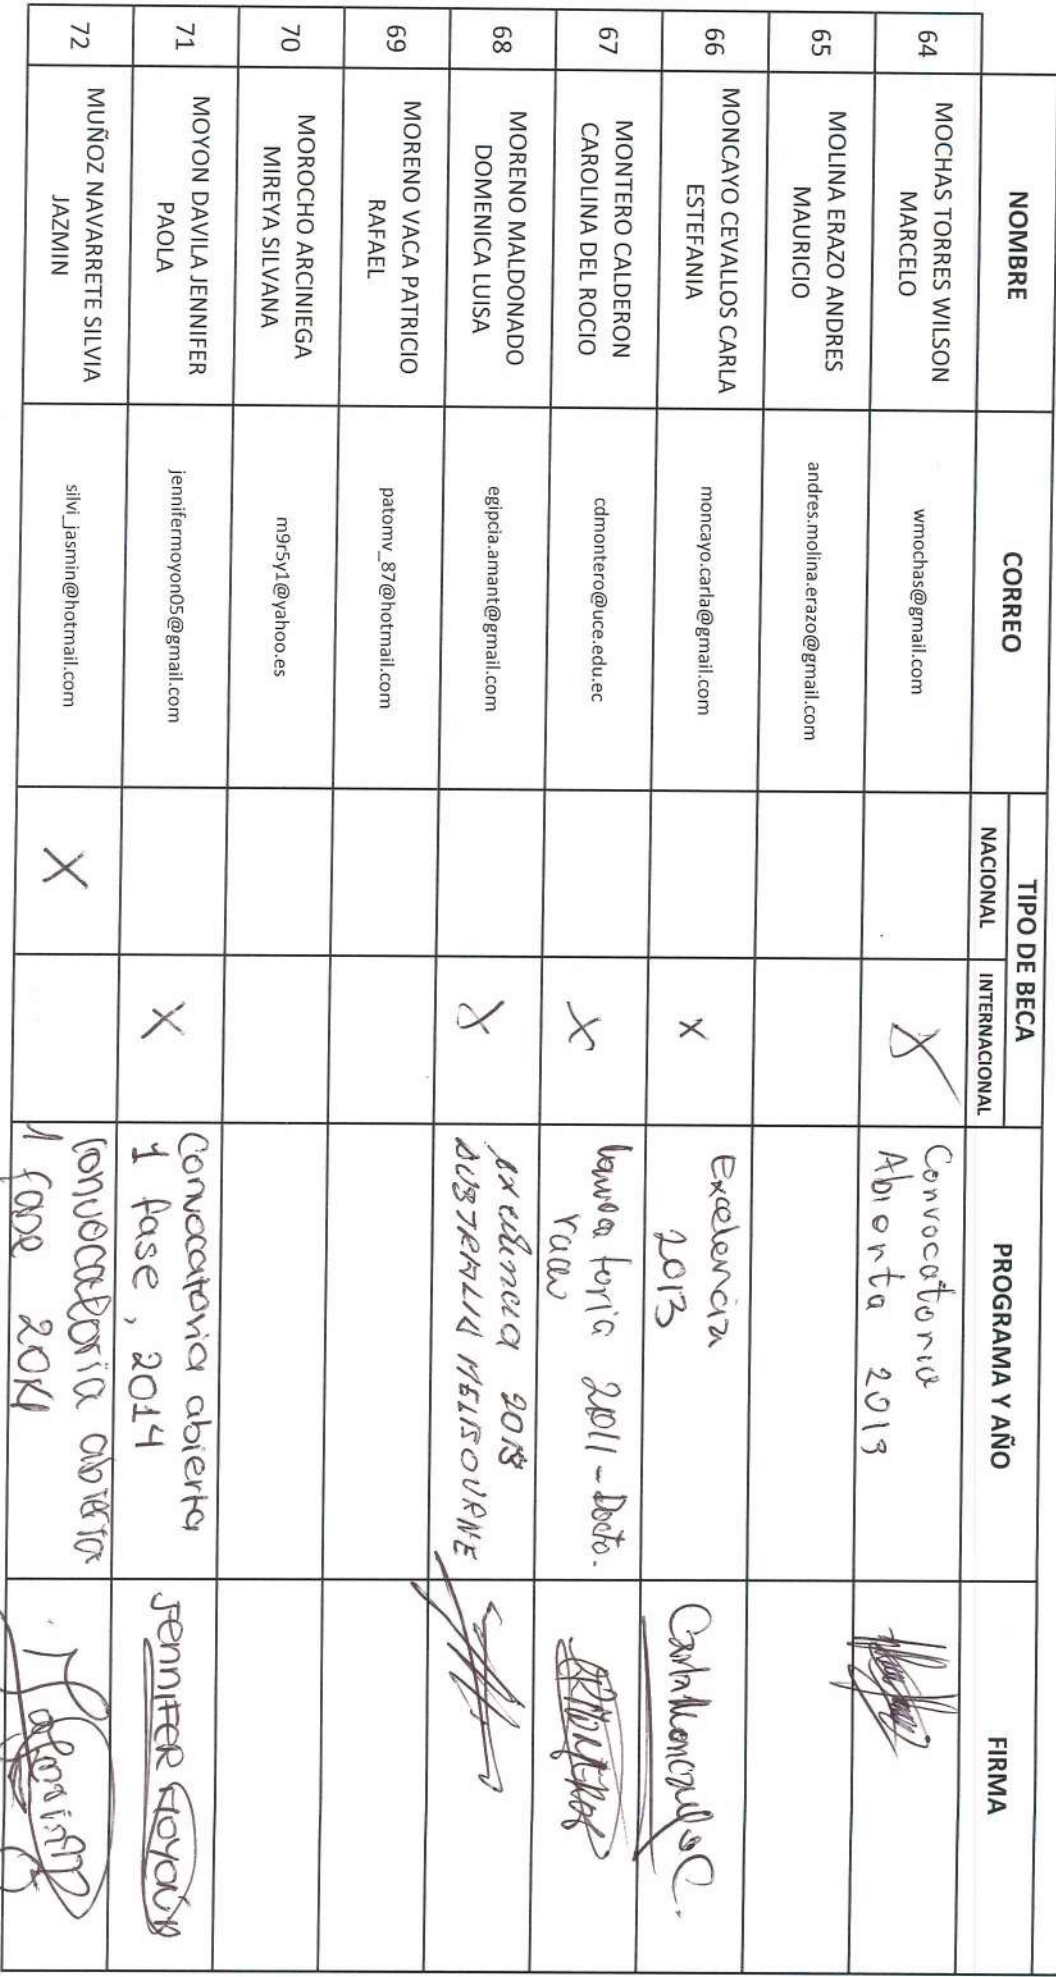 NOMBRE
CORREO
TIPO DE BECA
NACIONAL
INTERNACIONAL
PROGRAMA Y AÑO
FIRMA
64
MOCHAS TORRES WILSON
MARCELO
wmochas@gmail.com
X
Convocatoria
Abierta 2013
65
MOLINA ERAZO ANDRES
MAURICIO
andres.molina.erazo@gmail.com
66
MONCAYO CEVALLOS CARLA
ESTEFANIA
moncayo.carla@gmail.com
X
Excelencia
2013
Carla Moncayo C.
67
MONTERO CALDERON
CAROLINA DEL ROCIO
cdmontero@uce.edu.ec
X
2011 - Docto.
68
MORENO MALDONADO
DOMENICA LUISA
egipcia.amant@gmail.com
X
excelencia 2013
AUSTRALIA MELBOURNE
69
MORENO VACA PATRICIO
RAFAEL
patomv_87@hotmail.com
70
MOROCHO ARCINIEGA
MIREYA SILVANA
m9r5y1@yahoo.es
71
MOYON DAVILA JENNIFER
PAOLA
jennifermoyon05@gmail.com
X
Convocatoria abierta
1 fase, 2014
JENNIFER MOYÓN
72
MUÑOZ NAVARRETE SILVIA
JAZMIN
silvi_jasmin@hotmail.com
X
Convocatoria abierta
1 fase 2014